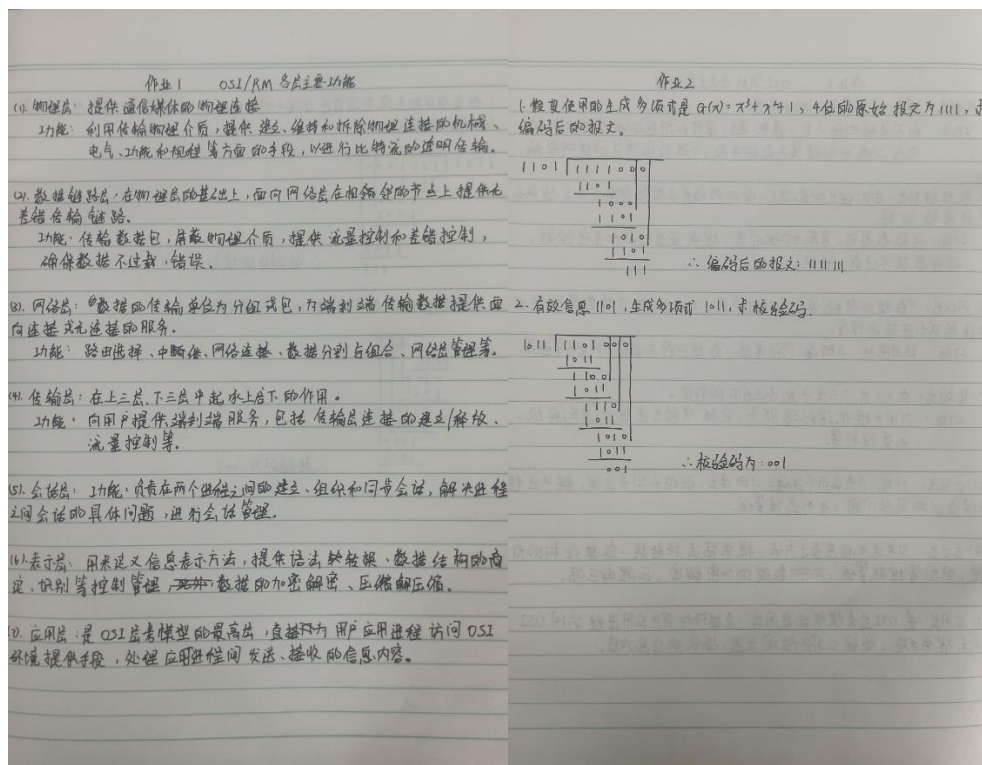 作业1 OSI/RM 各层主要功能
(1). 物理层: 提供通信媒体的物理连接
功能: 利用传输物理介质,提供建立、维持和拆除物理连接的机械、
电气、功能和规程等方面的手段,以进行比特流的透明传输。
(2). 数据链路层: 在物理层的基础上,面向网络层在相邻的节点上提供无
差错传输链路。
功能: 传输数据包,屏蔽物理介质,提供流量控制和差错控制,
确保数据不过载、错误。
(3). 网络层: 数据的传输单位为分组或包,为端到端传输数据提供面
向连接或无连接的服务。
功能: 路由选择、中继、网络连接、数据分割与组合、网络层管理等。
(4). 传输层: 在上三层、下三层中起承上启下的作用。
功能: 向用户提供端到端服务,包括传输层连接的建立/释放、
流量控制等。
(5). 会话层: 功能: 负责在两个进程之间的建立、组织和同步会话,解决进程
之间会话的具体问题,进行会话管理。
(6). 表示层: 用来定义信息表示方法,提供语法转换、数据结构的商
定、识别等控制管理,数据的加密解密、压缩解压缩。
(7). 应用层: 是OSI层者模型的最高层,直接为用户应用进程访问OSI
环境提供手段,处理应用进程间发送、接收的信息内容。
作业2
1. 假设使用的生成多项式是 G(x)=x³+x²+1, 4位的原始报文为1111,
编码后的报文。
1101 1111000
1101
1000
1101
1010
1101
111
∴ 编码后的报文: 1111 111
2. 有效信息1101,生成多项式1011,求校验码.
1011 1101000
1011
1100
1011
1110
1011
1010
1011
001
∴校验码为:001